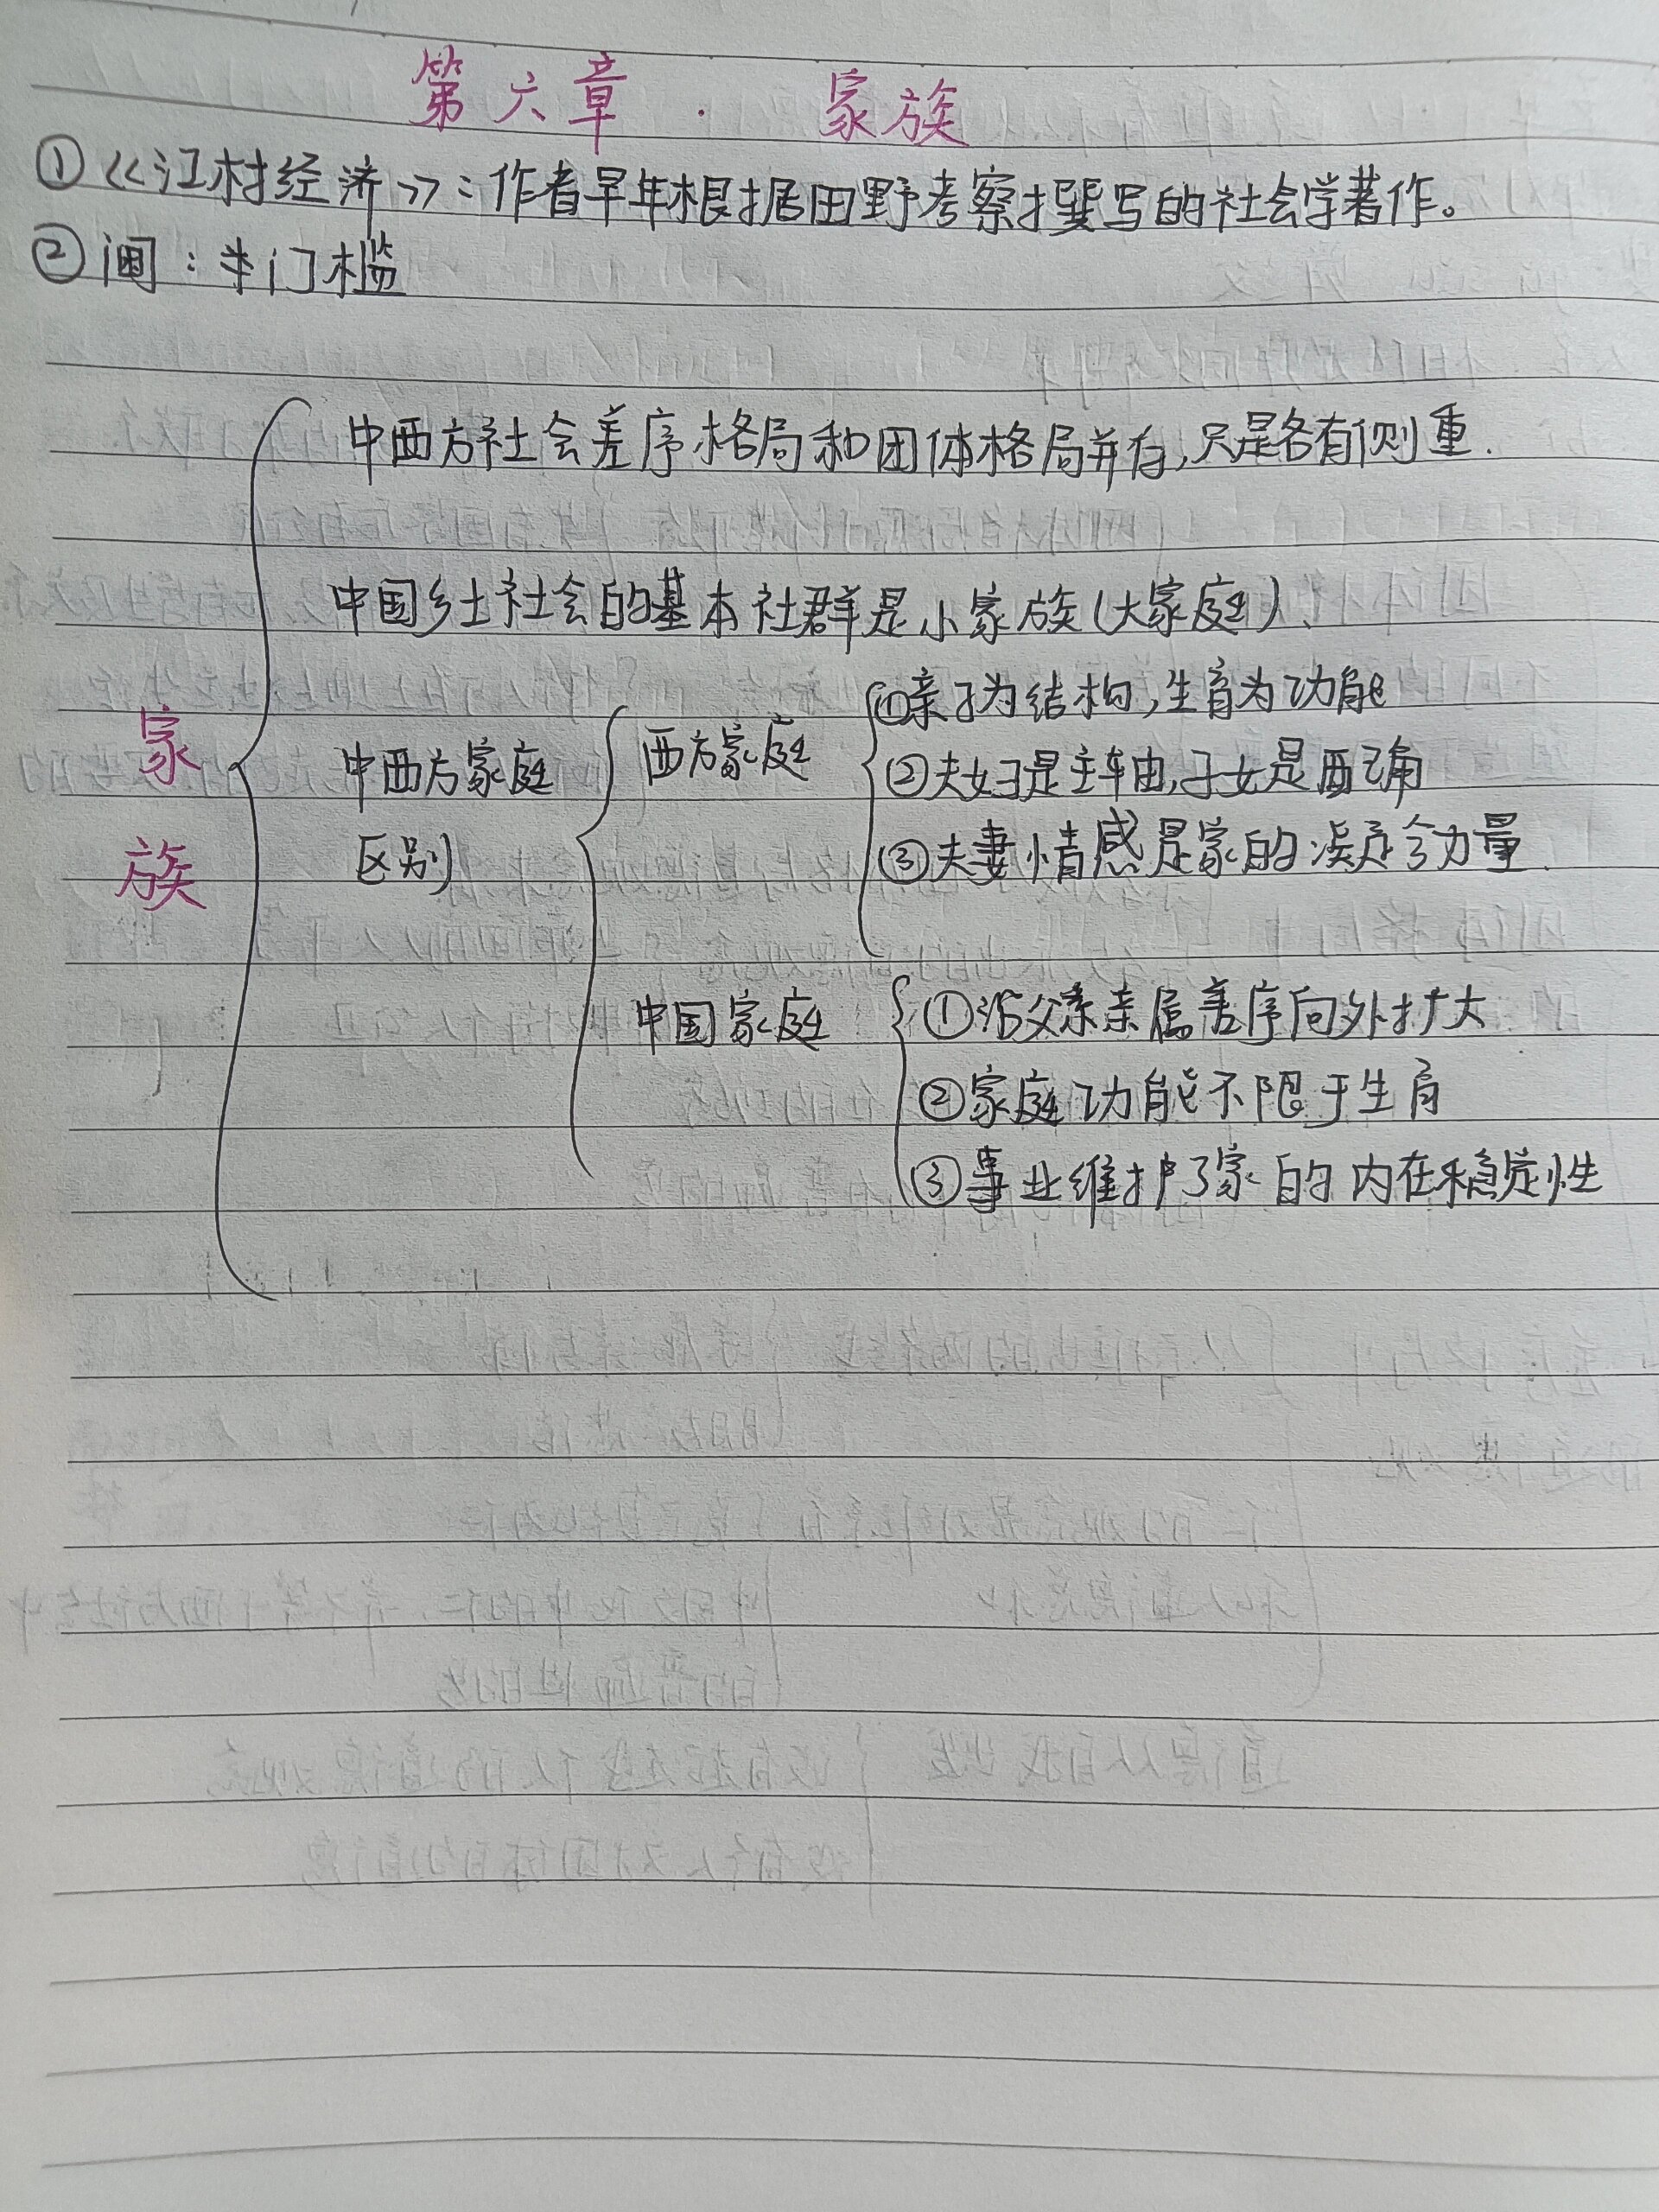 第六章 · 家族
①《江村经济》：作者早年根据田野考察撰写的社会学著作。
② 阃：门槛
中西方社会差序格局和团体格局并存,只是各有侧重.
中国乡土社会的基本社群是小家族(大家庭)
家族
中西方家庭
区别
西方家庭
①亲子为结构,生育为功能
②夫妇是主轴,子女是配角
③夫妻情感是家的凝合力量.
中国家庭
①沿父系亲属差序向外扩大
②家庭功能不限于生育
③事业维护了家的内在稳定性